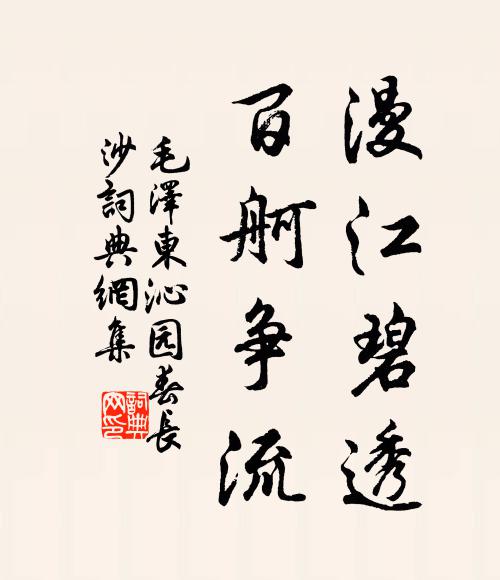 漫江碧透
百舸争流
毛澤東沁园春長
沙詞典網集
詞典
网印